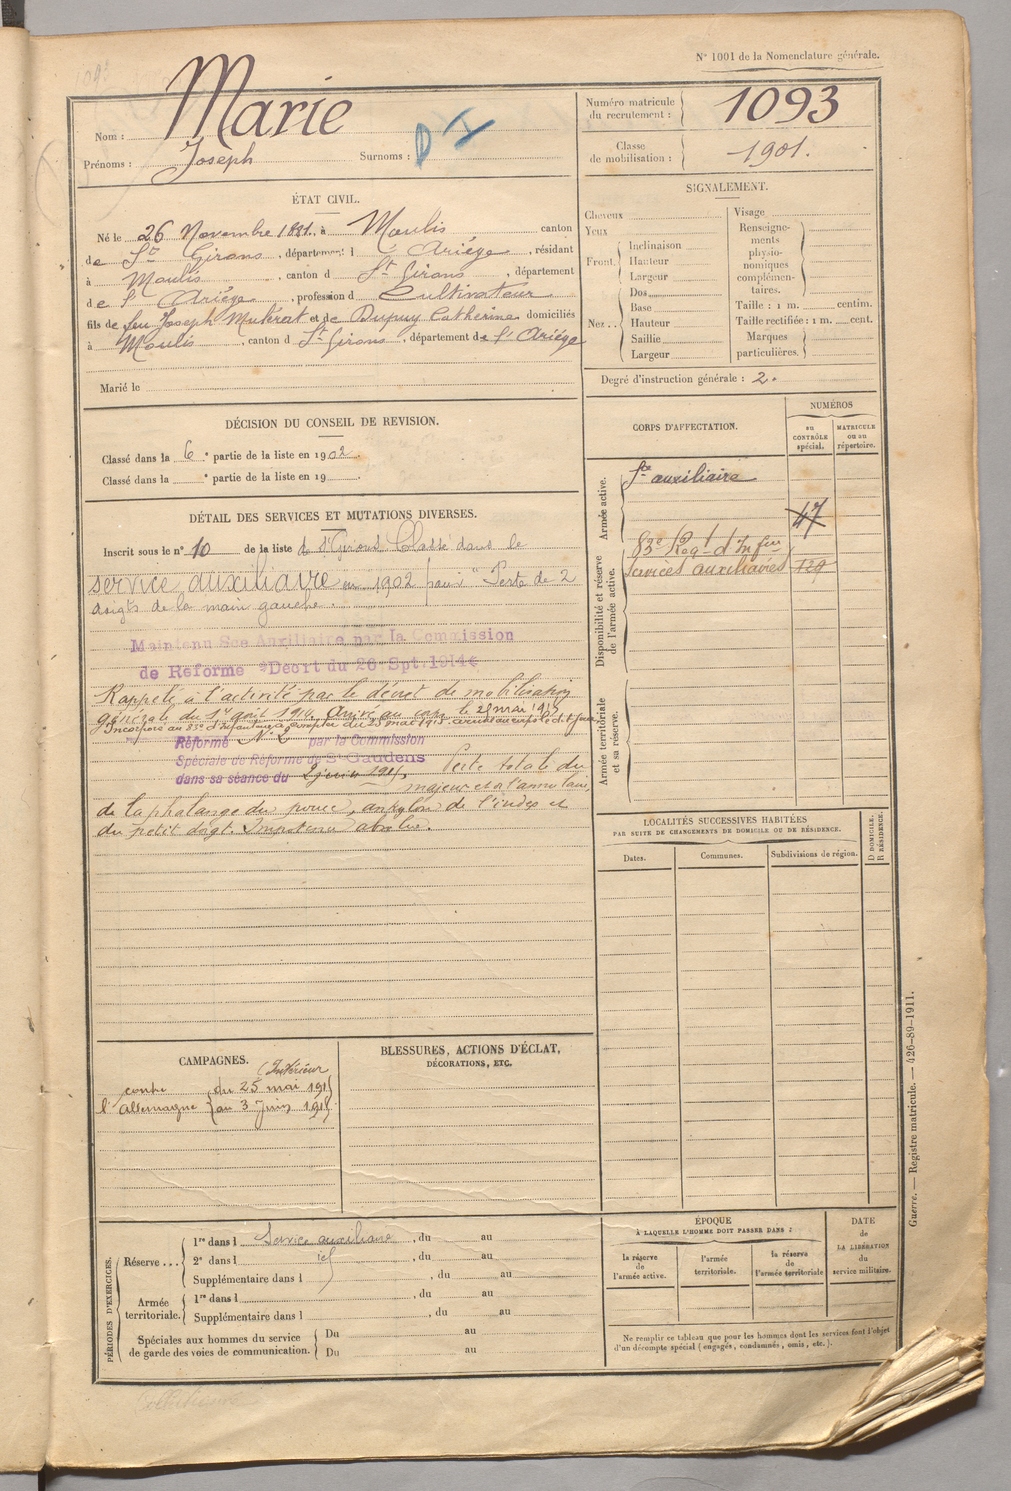 N° 1001 de la Nomenclature générale.
Nom : Marie
Prénoms : Joseph Surnoms : D I
Numéro matricule du recrutement : 1093
Classe de mobilisation : 1901.
ÉTAT CIVIL.
Né le 26 Novembre 1881. à Moulis canton
de St Girons, département l'Ariège, résidant
à Moulis, canton d St Girons, département
de l'Ariège, profession d Cultivateur
fils de feu Joseph et de Dupuy Catherine domiciliés
à Moulis, canton d St Girons, département de l'Ariège
Marié le
SIGNALEMENT.
Cheveux
Yeux
Front. Inclinaison
Hauteur
Largeur
Nez.. Dos
Base
Hauteur
Saillie
Largeur
Visage
Renseigne-
ments
physio-
nomiques
complémen-
taires.
Taille : 1 m. centim.
Taille rectifiée : 1 m. cent.
Marques
particulières.
Degré d'instruction générale : 2.
DÉCISION DU CONSEIL DE REVISION.
Classé dans la 6e partie de la liste en 1902.
Classé dans la e partie de la liste en 19
CORPS D'AFFECTATION.
NUMÉROS
au CONTRÔLE spécial.
MATRICULE ou au répertoire.
Armée active.
Sce auxiliaire
47
Disponibilité et réserve de l'armée active.
83e Reg- d'Infie
Services auxiliaires
Armée territoriale et sa réserve.
DÉTAIL DES SERVICES ET MUTATIONS DIVERSES.
Inscrit sous le n° 10 de la liste de St Girons Classé dans le
service auxiliaire en 1902 pour "Perte de 2
doigts de la main gauche.
Maintenu Sce Auxiliaire par la Commission
de Réforme Décrt du 26 Spt. 1914
Rappelé à l'activité par le décret de mobilisation
générale du 1er août 1914. Arrivé au corps le 25 mai 1915
Incorporé au 83e d'Infanterie à compter du 25 mai 1915
Réformé N° 2 par la Commission
Spéciale de Réforme de St-Gaudens
dans sa séance du Perte totale du
majeur et de l'annulaire,
de la phalange du pouce, ankylose de l'index et
du petit doigt. Impotence absolue.
LOCALITÉS SUCCESSIVES HABITÉES
PAR SUITE DE CHANGEMENTS DE DOMICILE OU DE RÉSIDENCE.
D DOMICILE. R RÉSIDENCE.
Dates. Communes. Subdivisions de région.
CAMPAGNES.
Intérieur
contre du 25 mai 191
l'Allemagne au 3 Juin 191
BLESSURES, ACTIONS D'ÉCLAT,
DÉCORATIONS, ETC.
PÉRIODES D'EXERCICES.
Réserve... 1re dans l Service auxiliaire, du au
2e dans l id, du au
Supplémentaire dans l, du au
Armée territoriale. 1re dans l, du au
Supplémentaire dans l, du au
Spéciales aux hommes du service Du au
de garde des voies de communication. Du au
ÉPOQUE
À LAQUELLE L'HOMME DOIT PASSER DANS :
la réserve de l'armée active.
l'armée territoriale.
la réserve de l'armée territoriale
DATE
de
LA LIBÉRATION
du
service militaire.
Ne remplir ce tableau que pour les hommes dont les services font l'objet
d'un décompte spécial (engagés, condamnés, omis, etc.).
Guerre. — Registre matricule. — 426-89-1911.